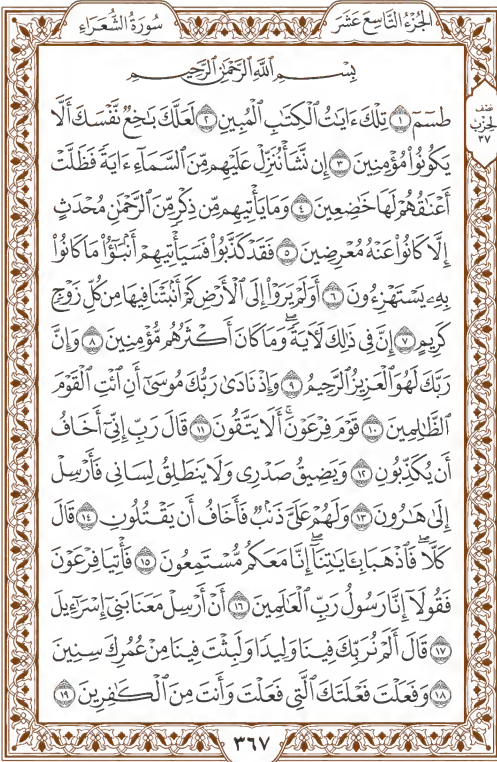 الجُزْءُ التَّاسِعَ عَشَرَ
سُورَةُ الشُّعَرَاءِ
نصف
الحزب
٣٧
بِسْمِ ٱللَّهِ ٱلرَّحْمَٰنِ ٱلرَّحِيمِ
طسٓمٓ ١ تِلْكَ ءَايَٰتُ ٱلْكِتَٰبِ ٱلْمُبِينِ ٢ لَعَلَّكَ بَٰخِعٌ نَّفْسَكَ أَلَّا
يَكُونُوا۟ مُؤْمِنِينَ ٣ إِن نَّشَأْ نُنَزِّلْ عَلَيْهِم مِّنَ ٱلسَّمَآءِ ءَايَةً فَظَلَّتْ
أَعْنَٰقُهُمْ لَهَا خَٰضِعِينَ ٤ وَمَا يَأْتِيهِم مِّن ذِكْرٍ مِّنَ ٱلرَّحْمَٰنِ مُحْدَثٍ
إِلَّا كَانُوا۟ عَنْهُ مُعْرِضِينَ ٥ فَقَدْ كَذَّبُوا۟ فَسَيَأْتِيهِمْ أَنۢبَٰٓؤُا۟ مَا كَانُوا۟
بِهِۦ يَسْتَهْزِءُونَ ٦ أَوَلَمْ يَرَوْا۟ إِلَى ٱلْأَرْضِ كَمْ أَنۢبَتْنَا فِيهَا مِن كُلِّ زَوْجٍ
كَرِيمٍ ٧ إِنَّ فِى ذَٰلِكَ لَءَايَةً ۖ وَمَا كَانَ أَكْثَرُهُم مُّؤْمِنِينَ ٨ وَإِنَّ
رَبَّكَ لَهُوَ ٱلْعَزِيزُ ٱلرَّحِيمُ ٩ وَإِذْ نَادَىٰ رَبُّكَ مُوسَىٰٓ أَنِ ٱئْتِ ٱلْقَوْمَ
ٱلظَّٰلِمِينَ ١٠ قَوْمَ فِرْعَوْنَ ۚ أَلَا يَتَّقُونَ ١١ قَالَ رَبِّ إِنِّىٓ أَخَافُ
أَن يُكَذِّبُونِ ١٢ وَيَضِيقُ صَدْرِى وَلَا يَنطَلِقُ لِسَانِى فَأَرْسِلْ
إِلَىٰ هَٰرُونَ ١٣ وَلَهُمْ عَلَىَّ ذَنۢبٌ فَأَخَافُ أَن يَقْتُلُونِ ١٤ قَالَ
كَلَّا ۖ فَٱذْهَبَا بِـَٔايَٰتِنَآ ۖ إِنَّا مَعَكُم مُّسْتَمِعُونَ ١٥ فَأْتِيَا فِرْعَوْنَ
فَقُولَآ إِنَّا رَسُولُ رَبِّ ٱلْعَٰلَمِينَ ١٦ أَنْ أَرْسِلْ مَعَنَا بَنِىٓ إِسْرَٰٓءِيلَ
١٧ قَالَ أَلَمْ نُرَبِّكَ فِينَا وَلِيدًا وَلَبِثْتَ فِينَا مِنْ عُمُرِكَ سِنِينَ
١٨ وَفَعَلْتَ فَعْلَتَكَ ٱلَّتِى فَعَلْتَ وَأَنتَ مِنَ ٱلْكَٰفِرِينَ ١٩
٣٦٧